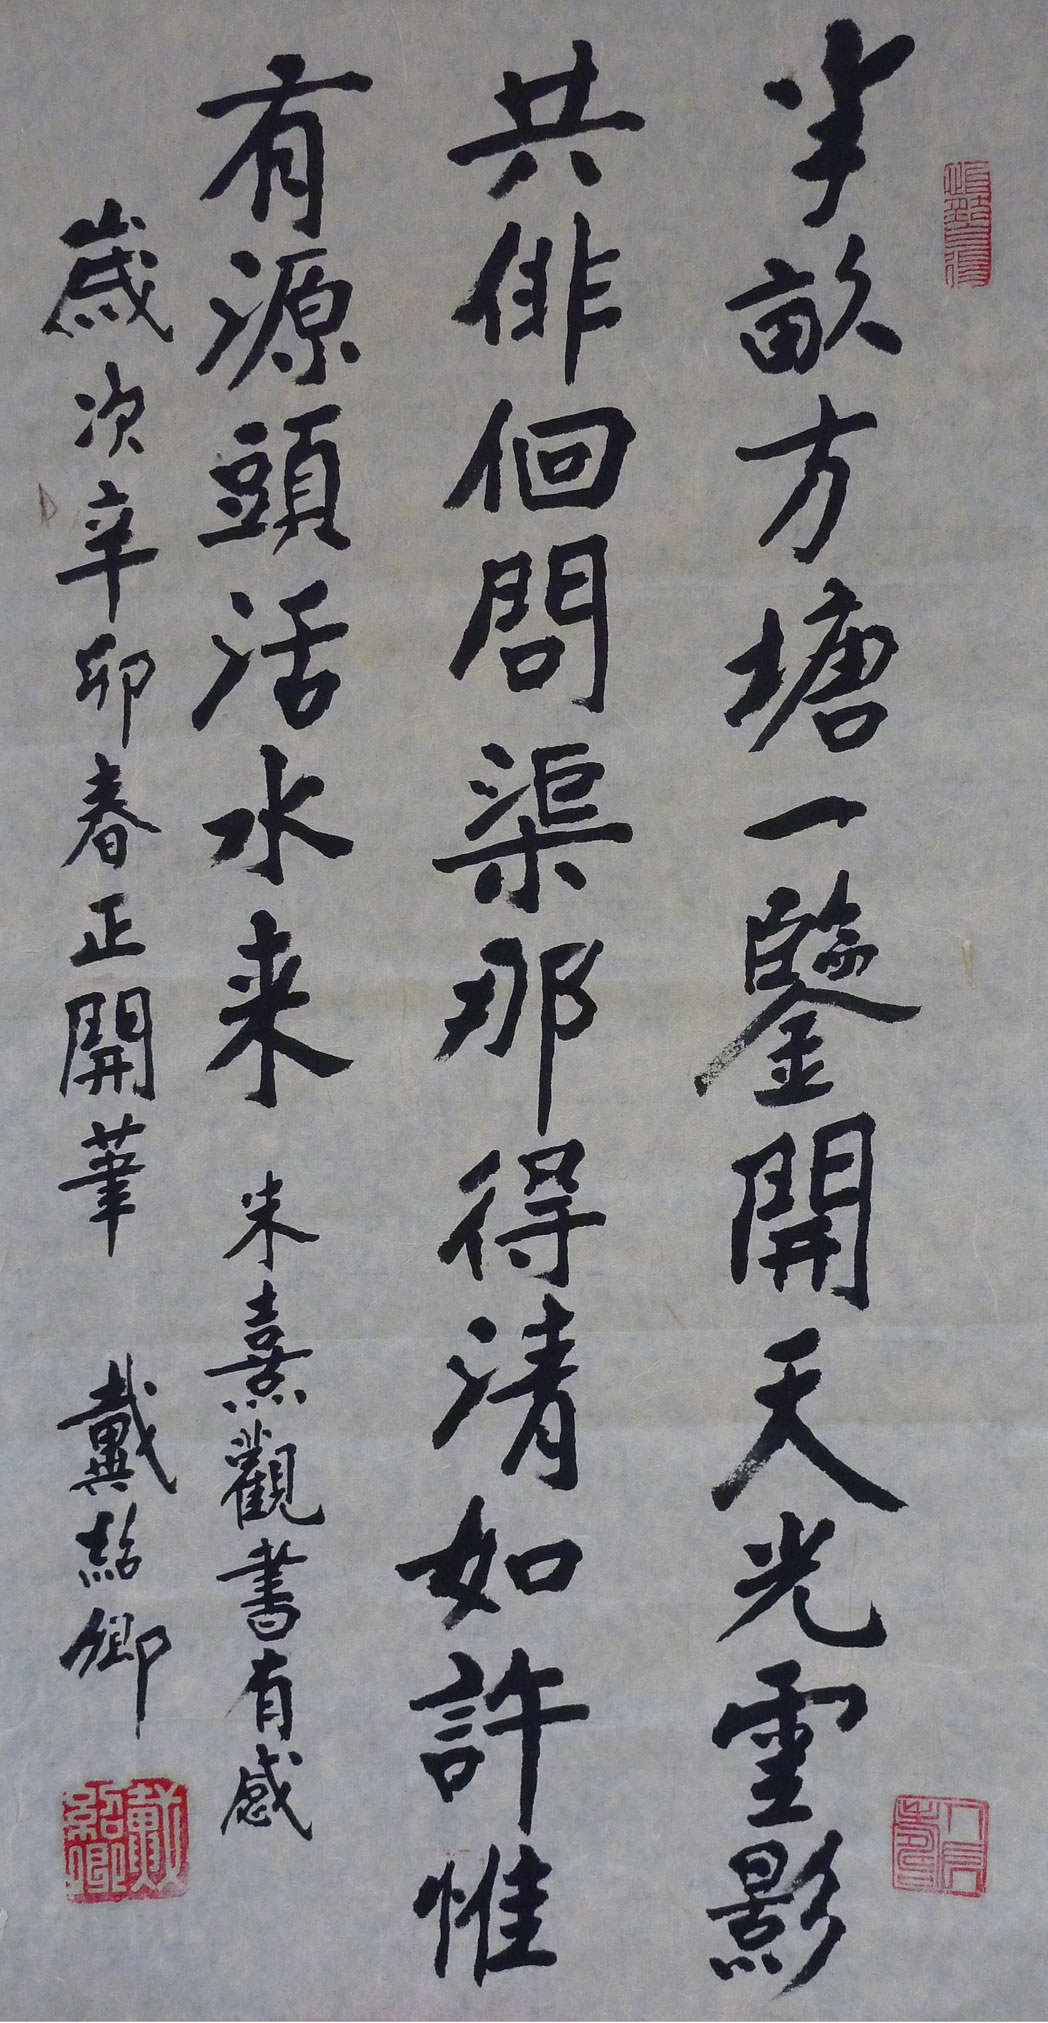 半畝方塘一鑒開天光雲影
共俳佪問渠那得清如許惟
有源頭活水来 朱熹觀書有感
歲次辛卯春正開筆 戴紹卿
戴紹卿